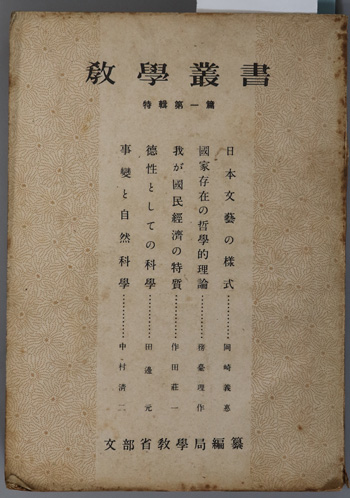 教學叢書
特輯第一篇
日本文藝の樣式…………岡崎義惠
國家存在の哲學的理論…………務臺理作
我が國民經濟の特質…………作田莊一
德性としての科學…………田邊元
事變と自然科學…………中村淸二
文部省敎學局編纂